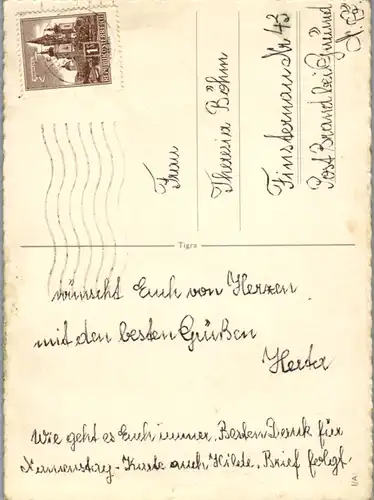 REPUBLIK ÖSTERREICH
Frau
Theresia Böhm
Finsternau Nr 43
Post Brand bei Gmünd
N.Ö.
Tigra
wünscht Euch von Herzen
mit den besten Grüßen
Herta
Wie geht es Euch immer, Besten Dank für
Namenstag-Karte auch Hilde, Brief folgt
I/A